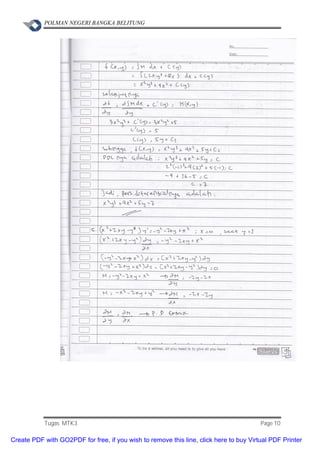 POLMAN NEGERI BANGKA BELITUNG
No.
Date
f(x,y) : ∫M dx + C(y)
= ∫(2xy³+8x) dx + C(y)
= x²y³ + 4x² + C(y)
selanjutnya
∂f : ∂∫M dx + C'(y) : N(x,y)
∂y ∂y
3x²y² + C'(y) = 3x²y²+5
C'(y) = 5
C(y) = 5y + C1
Sehingga f(x,y) = x²y³ + 4x² + 5y + C1
PDL nya adalah : x²y³ + 4x² + 5y = C
2²(-1)³ +4(2)² + 5(-1) = C
-4 + 16 - 5 = C
C = 7
Jadi, adalah :
x²y³ + 4x² + 5y = 7
(x²+2xy-y²) y' = y²-2xy+x² ; x=0 saat y=1
(x²+2xy-y²) dy = y²-2xy+x²
dx
(-y²-2xy+x²) dx = (x²+2xy-y²) dy
(-y²-2xy+x²) dx - (x²+2xy-y²) dy = 0
M = -y²-2xy+x² → ∂M = -2y-2x
∂y
N = -x²-2xy+y² → ∂N = -2x-2y
∂x
∂M = ∂N → P.D Eksak
∂y ∂x
To be a winner, all you need is to give all you have
Tugas MTK3 Page 10
Create PDF with GO2PDF for free, if you wish to remove this line, click here to buy Virtual PDF Printer